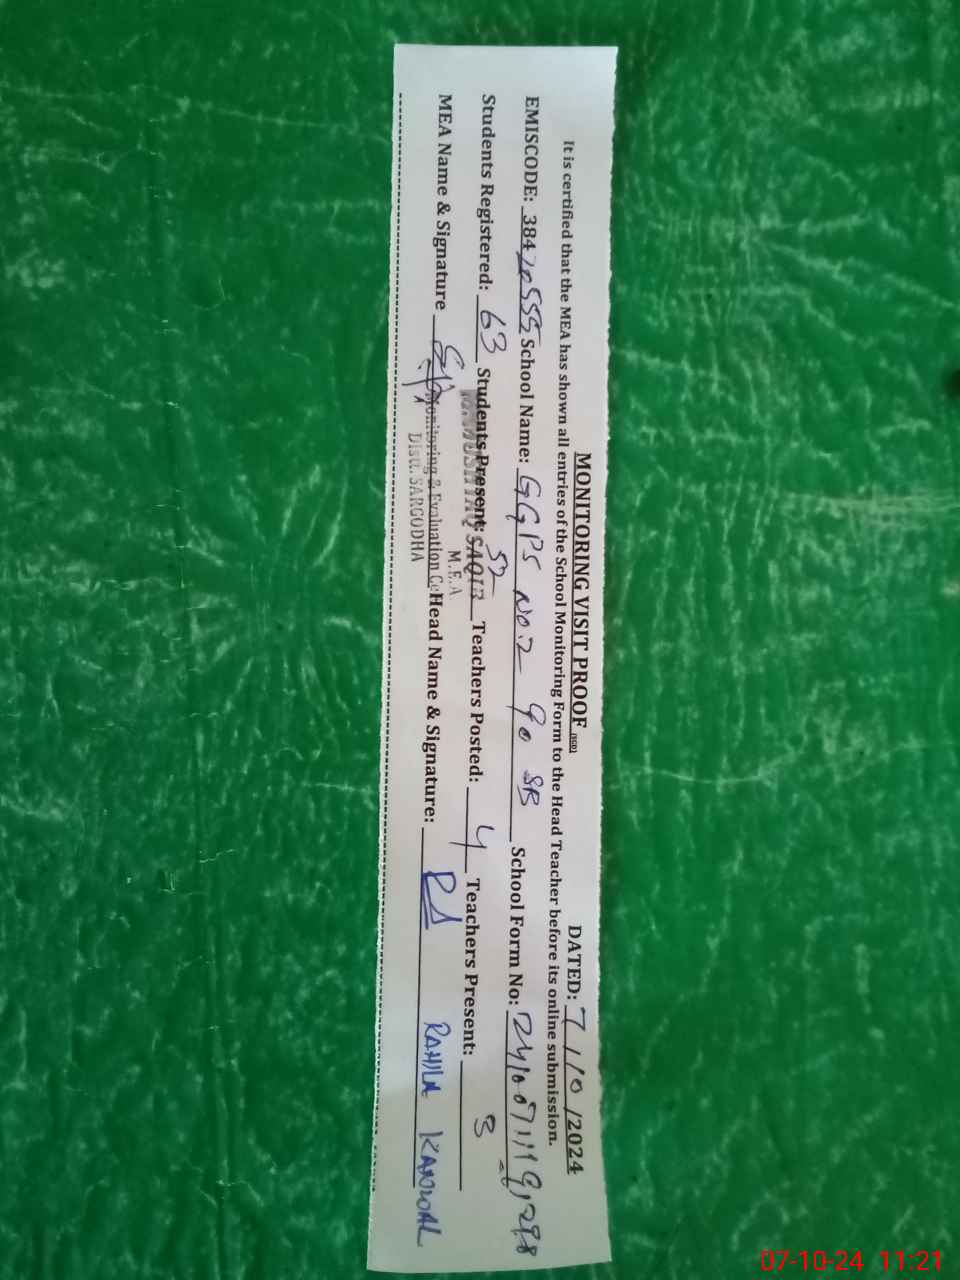 MONITORING VISIT PROOF (SGD) DATED: 7 / 10 /2024
It is certified that the MEA has shown all entries of the School Monitoring Form to the Head Teacher before its online submission.
EMISCODE: 38420555 School Name: GGPS No.2 90 SB School Form No:
Students Registered: 63 Students Present: 52 Teachers Posted: 4 Teachers Present: 3
MUSHTAQ SAQIB
M.E.A
MEA Name & Signature Monitoring & Evaluation Ce Head Name & Signature: RAHILA KANWAL
Distt. SARGODHA
07-10-24 11:21